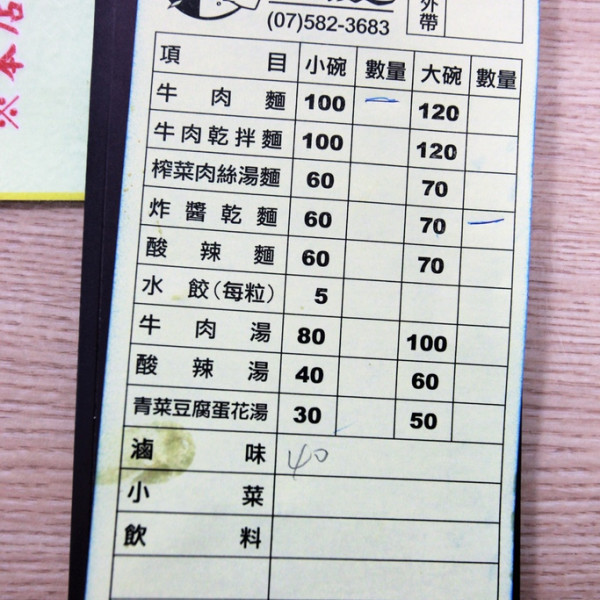 外帶
(07)582-3683
項目 小碗 數量 大碗 數量
牛肉麵 100 一 120
牛肉乾拌麵 100 120
榨菜肉絲湯麵 60 70
炸醬乾麵 60 70 一
酸辣麵 60 70
水餃(每粒) 5
牛肉湯 80 100
酸辣湯 40 60
青菜豆腐蛋花湯 30 50
滷味 40
小菜
飲料
※本店